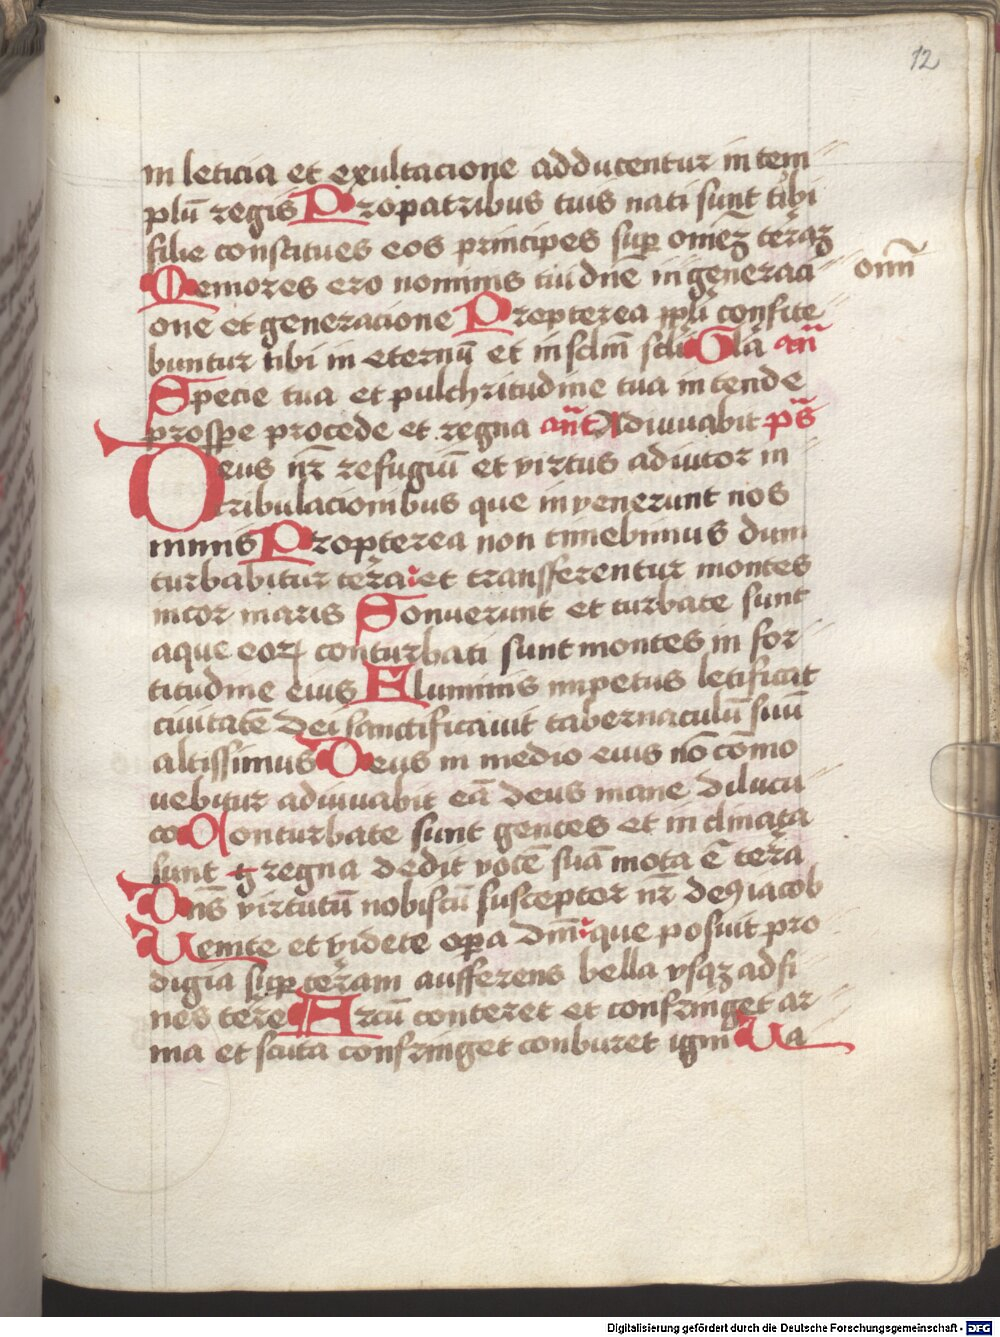 12
in leticia et exultacione adducentur in tem
plū regis Propatribus tuis nati sunt tibi
filie constitues eos principes sup omēz terāz
Memores ero nominis tui dne in generaci
onn̄
one et generacione Propterea ppl'i confite
buntur tibi in eternū et in sclm̄ scli Glā an̄
Specie tua et pulchritudine tua intende
prospe procede et regna ant̄ Adiuuabit ps̄
Deus nr̄ refugiū et virtus adiutor in
tribulacionibus que invenerunt nos
nimis Propterea non timebimus dum
turbabitur terra et transferentur montes
in cor maris Sonuerunt et turbate sunt
aque eoꝝ conturbati sunt montes in for
titudine eius Fluminis impetus letificat
ciuitatē dei sanctificauit tabernaculū suū
altissimus Deus in medio eius nō cōmo
uebitur adiuuabit eā deus mane dilucu
lo Conturbate sunt gentes et inclinata
sunt regna dedit vocē suā mota ē terā
Dns virtutū nobiscū susceptor nr̄ deꝯ iacob
Uenite et videte opa dm̄i que posuit pro
digia sup terram aufferens bella vsqz ad fi
nes terre Arcū conteret et confringet ar
ma et scuta confringet conburet igni Ua
Digitalisierung gefördert durch die Deutsche Forschungsgemeinschaft - DFG